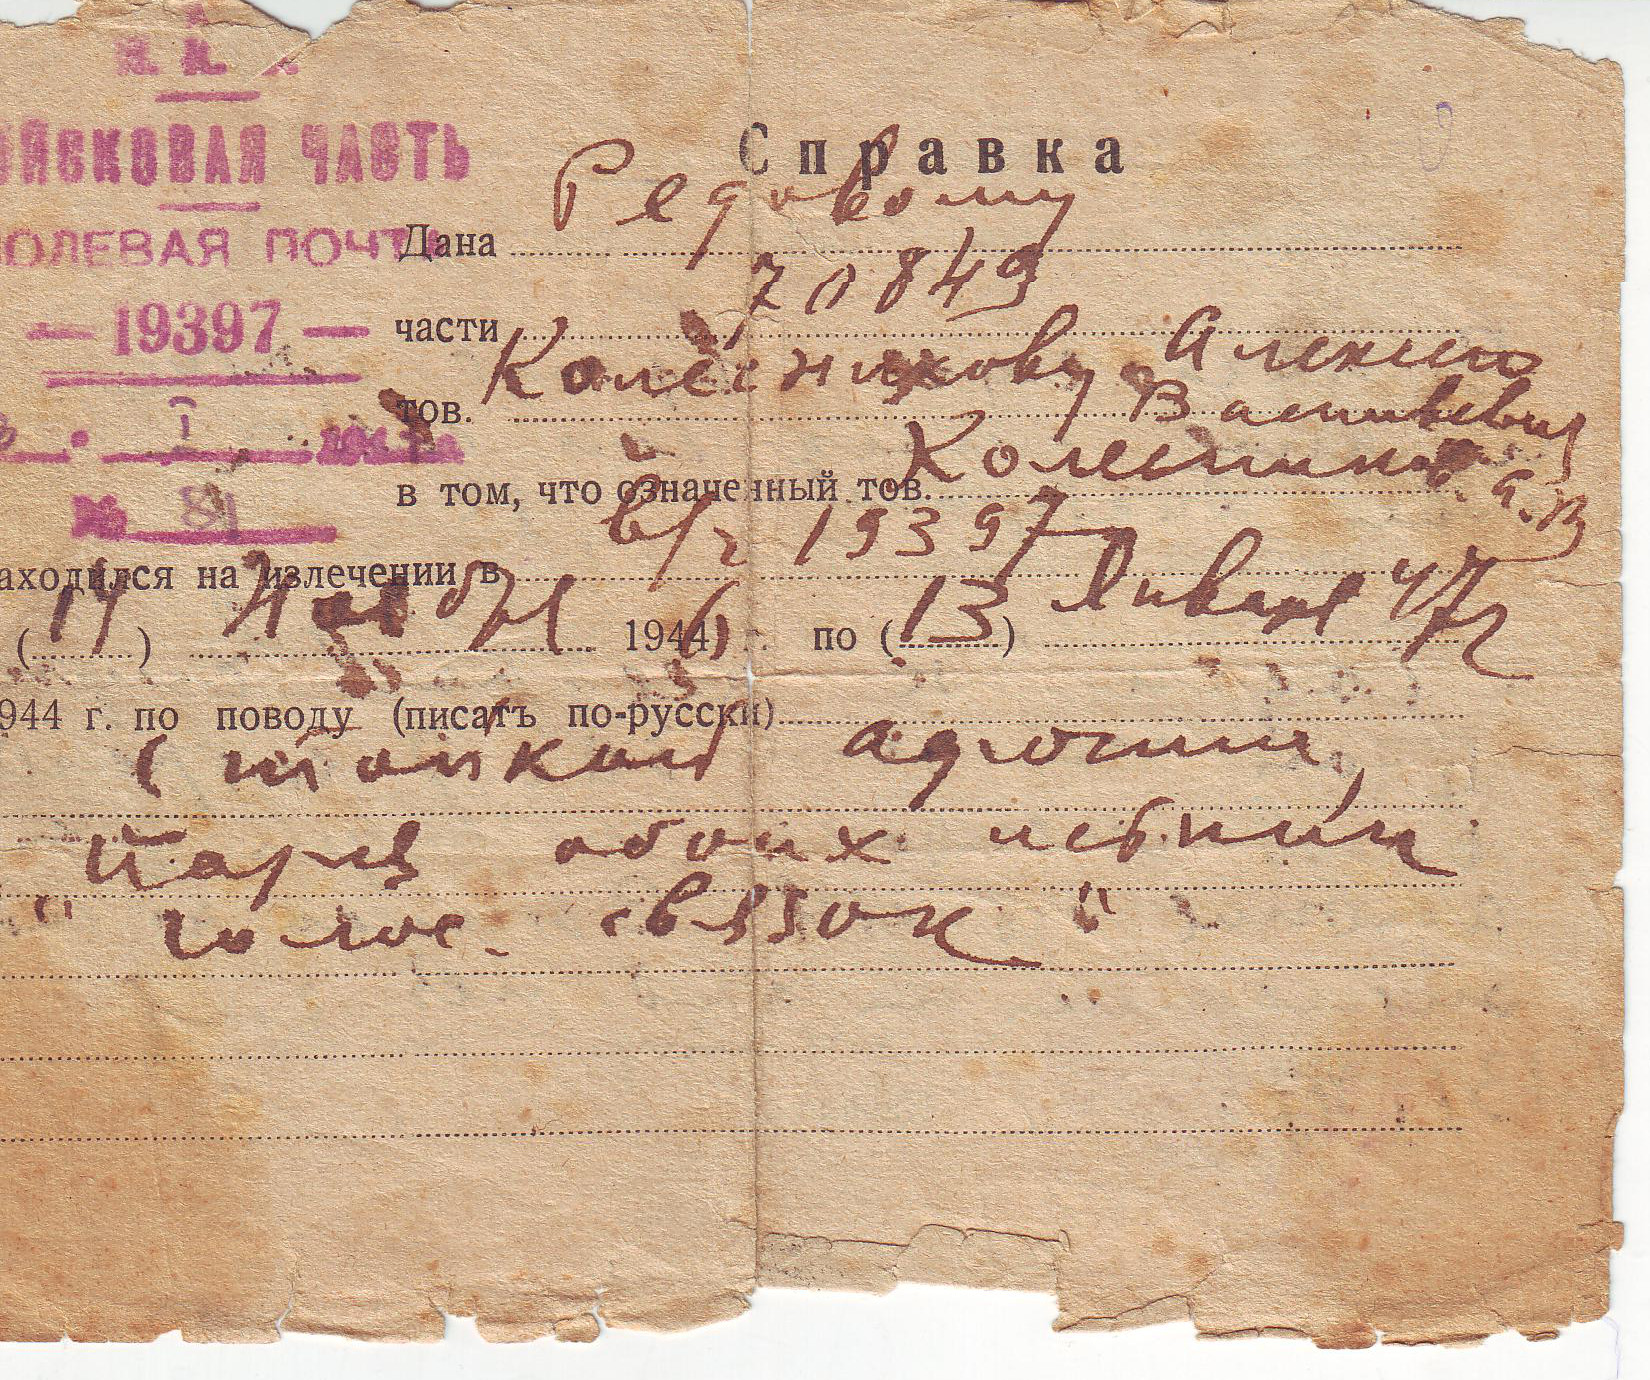 ОЙСКОВАЯ ЧАСТЬ
ПОЛЕВАЯ ПОЧТА
— 19397 —
I
№ 84
Справка
Дана Редовому
части 70849
тов. Колесникову Алексею
Василевич
в том, что означенный тов. Колесников А.В
аходился на излечении в в/ч 19397
(14) Ноября 1946 г. по (13) Января 47 г
944 г. по поводу (писать по-русски)
Стойкой адгонии,
Парез обоих истин
" голос. связок "